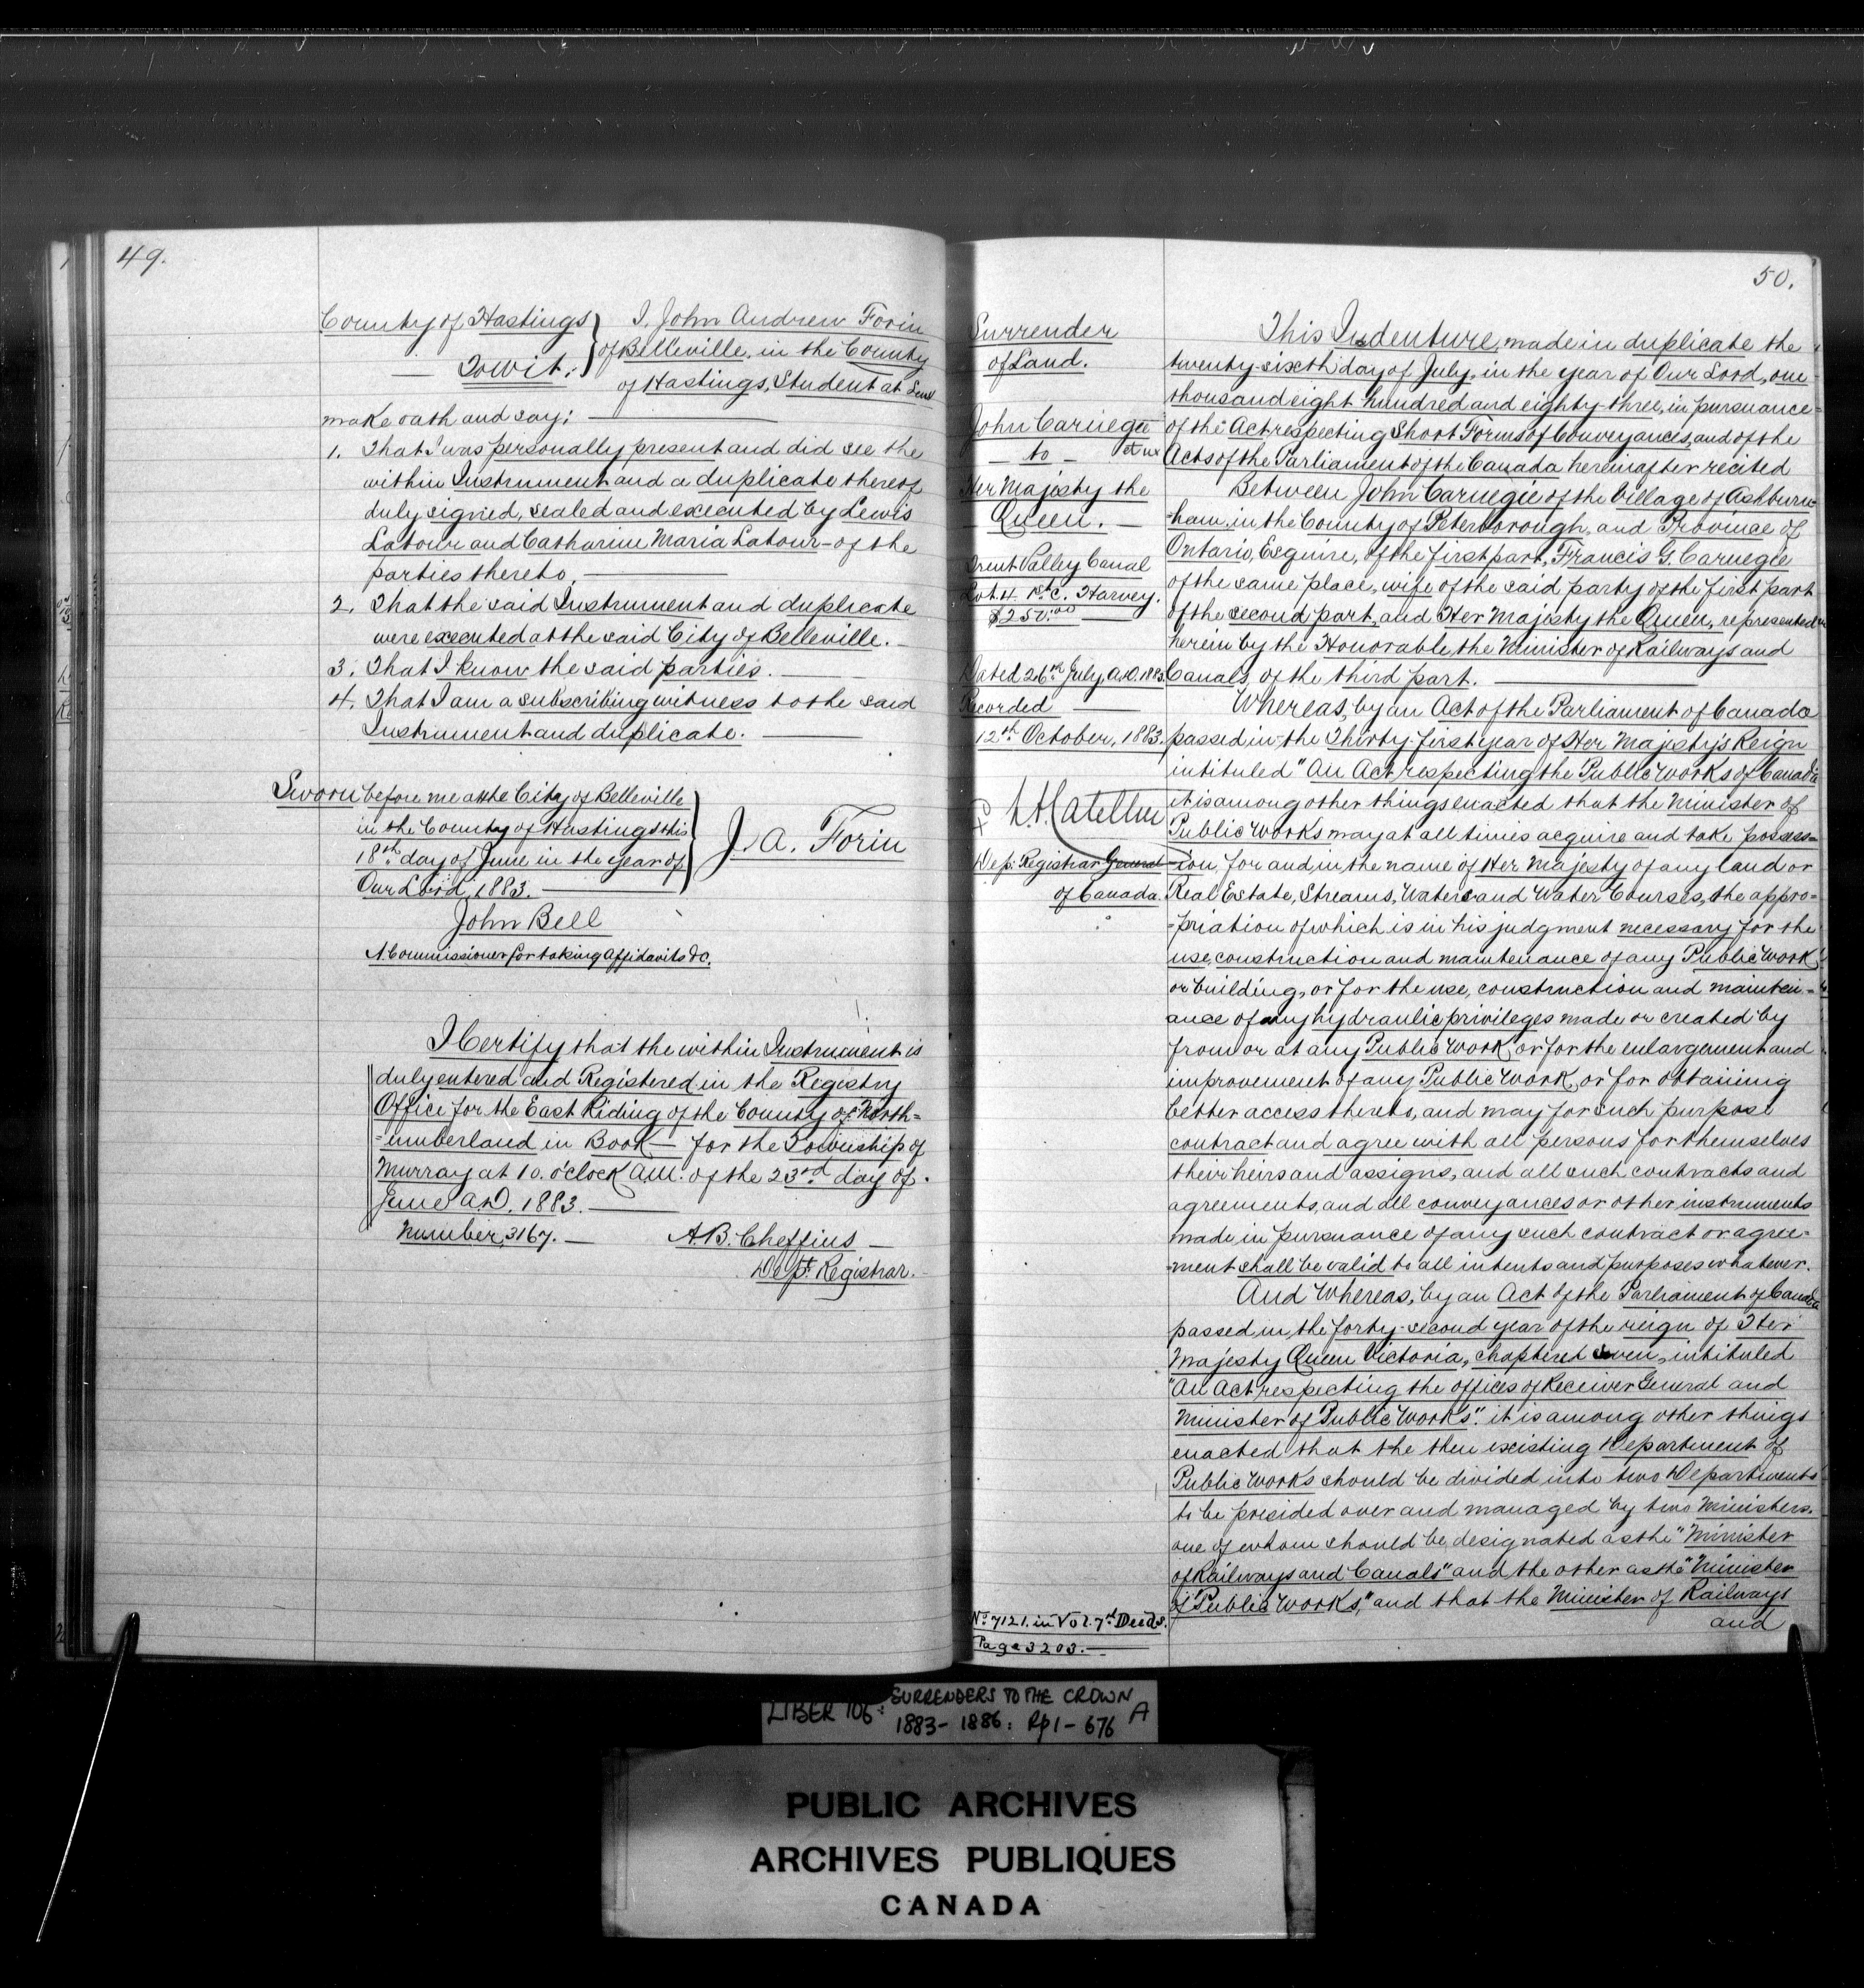 49.
County of Hastings
To wit:
I, John Andrew Forin
of Belleville, in the County
of Hastings, Student at Law
make oath and say:
1. That I was personally present and did see the
within Instrument and a duplicate thereof
duly signed, sealed and executed by Lewis
Latour and Catharine Maria Latour - of the
parties thereto,
2. That the said Instrument and duplicate
were executed at the said City of Belleville.
3. That I know the said parties.
4. That I am a subscribing witness to the said
Instrument and duplicate.
Sworn before me at the City of Belleville
in the County of Hastings this
18th day of June in the year of
Our Lord, 1883.
J. A. Forin
John Bell
A Commissioner for taking Affidavits &c.
I Certify that the within Instrument is
duly entered and Registered in the Registry
Office for the East Riding of the County of North=
=umberland in Book — for the Township of
Murray at 10. o'clock A.M. of the 23rd day of
June A.D. 1883.
Number 3167.
A. B. Cheffins
Dept. Registrar.
50.
Surrender
of Land.
John Carnegie
et ux
to
Her Majesty the
Queen.
Trent Valley Canal
Lot. 4. C. Harvey.
$250.00
Dated 26th July, A.D. 1883.
Recorded
12th October, 1883.
Dep: Registrar General
of Canada.
No. 7121. in Vol. 7th Deeds.
Page 3203.
This Indenture, made in duplicate the
twenty-sixth day of July, in the year of Our Lord, one
thousand eight hundred and eighty-three, in pursuance
of the Act respecting Short Forms of Conveyances, and of the
Acts of the Parliament of the Canada hereinafter recited
Between John Carnegie of the Village of Ashburn=
ham, in the County of Peterborough, and Province of
Ontario, Esquire, of the first part, Francis G. Carnegie
of the same place, wife of the said party of the first part
of the second part, and Her Majesty the Queen, represented
herein by the Honorable, the Minister of Railways and
Canals, of the third part.
Whereas, by an Act of the Parliament of Canada
passed in the Thirty-first year of Her Majesty's Reign
intituled "An Act respecting the Public Works of Canada
it is among other things enacted that the Minister of
Public Works may at all times acquire and take possess=
=ion, for and in the name of Her Majesty of any land or
Real Estate, Streams, Waters and Water Courses, the appro=
=priation of which is in his judgment necessary for the
use, construction and maintenance of any Public Work
or building, or for the use, construction and mainten=
ance of any hydraulic privileges made or created by
from or at any Public Work, or for the enlargement and
improvement of any Public Work, or for obtaining
better access thereto, and may for such purpose
contract and agree with all persons for themselves
their heirs and assigns, and all such contracts and
agreements, and all conveyances or other instruments
made in pursuance of any such contract or agree=
=ment shall be valid to all intents and purposes whatever.
And Whereas, by an Act of the Parliament of Canada
passed in the forty-second year of the reign of Her
Majesty Queen Victoria, chaptered seven, intituled
"An Act respecting the offices of Receiver General and
Minister of Public Works". it is among other things
enacted that the then existing Department of
Public Works should be divided into two Departments
to be presided over and managed by two Ministers.
one of whom should be designated as the "Minister
of Railways and Canals" and the other as the "Minister
of Public Works," and that the Minister of Railways
and
LIBER 106: SURRENDERS TO THE CROWN
1883-1886: Pp 1-676 A
PUBLIC ARCHIVES
ARCHIVES PUBLIQUES
CANADA